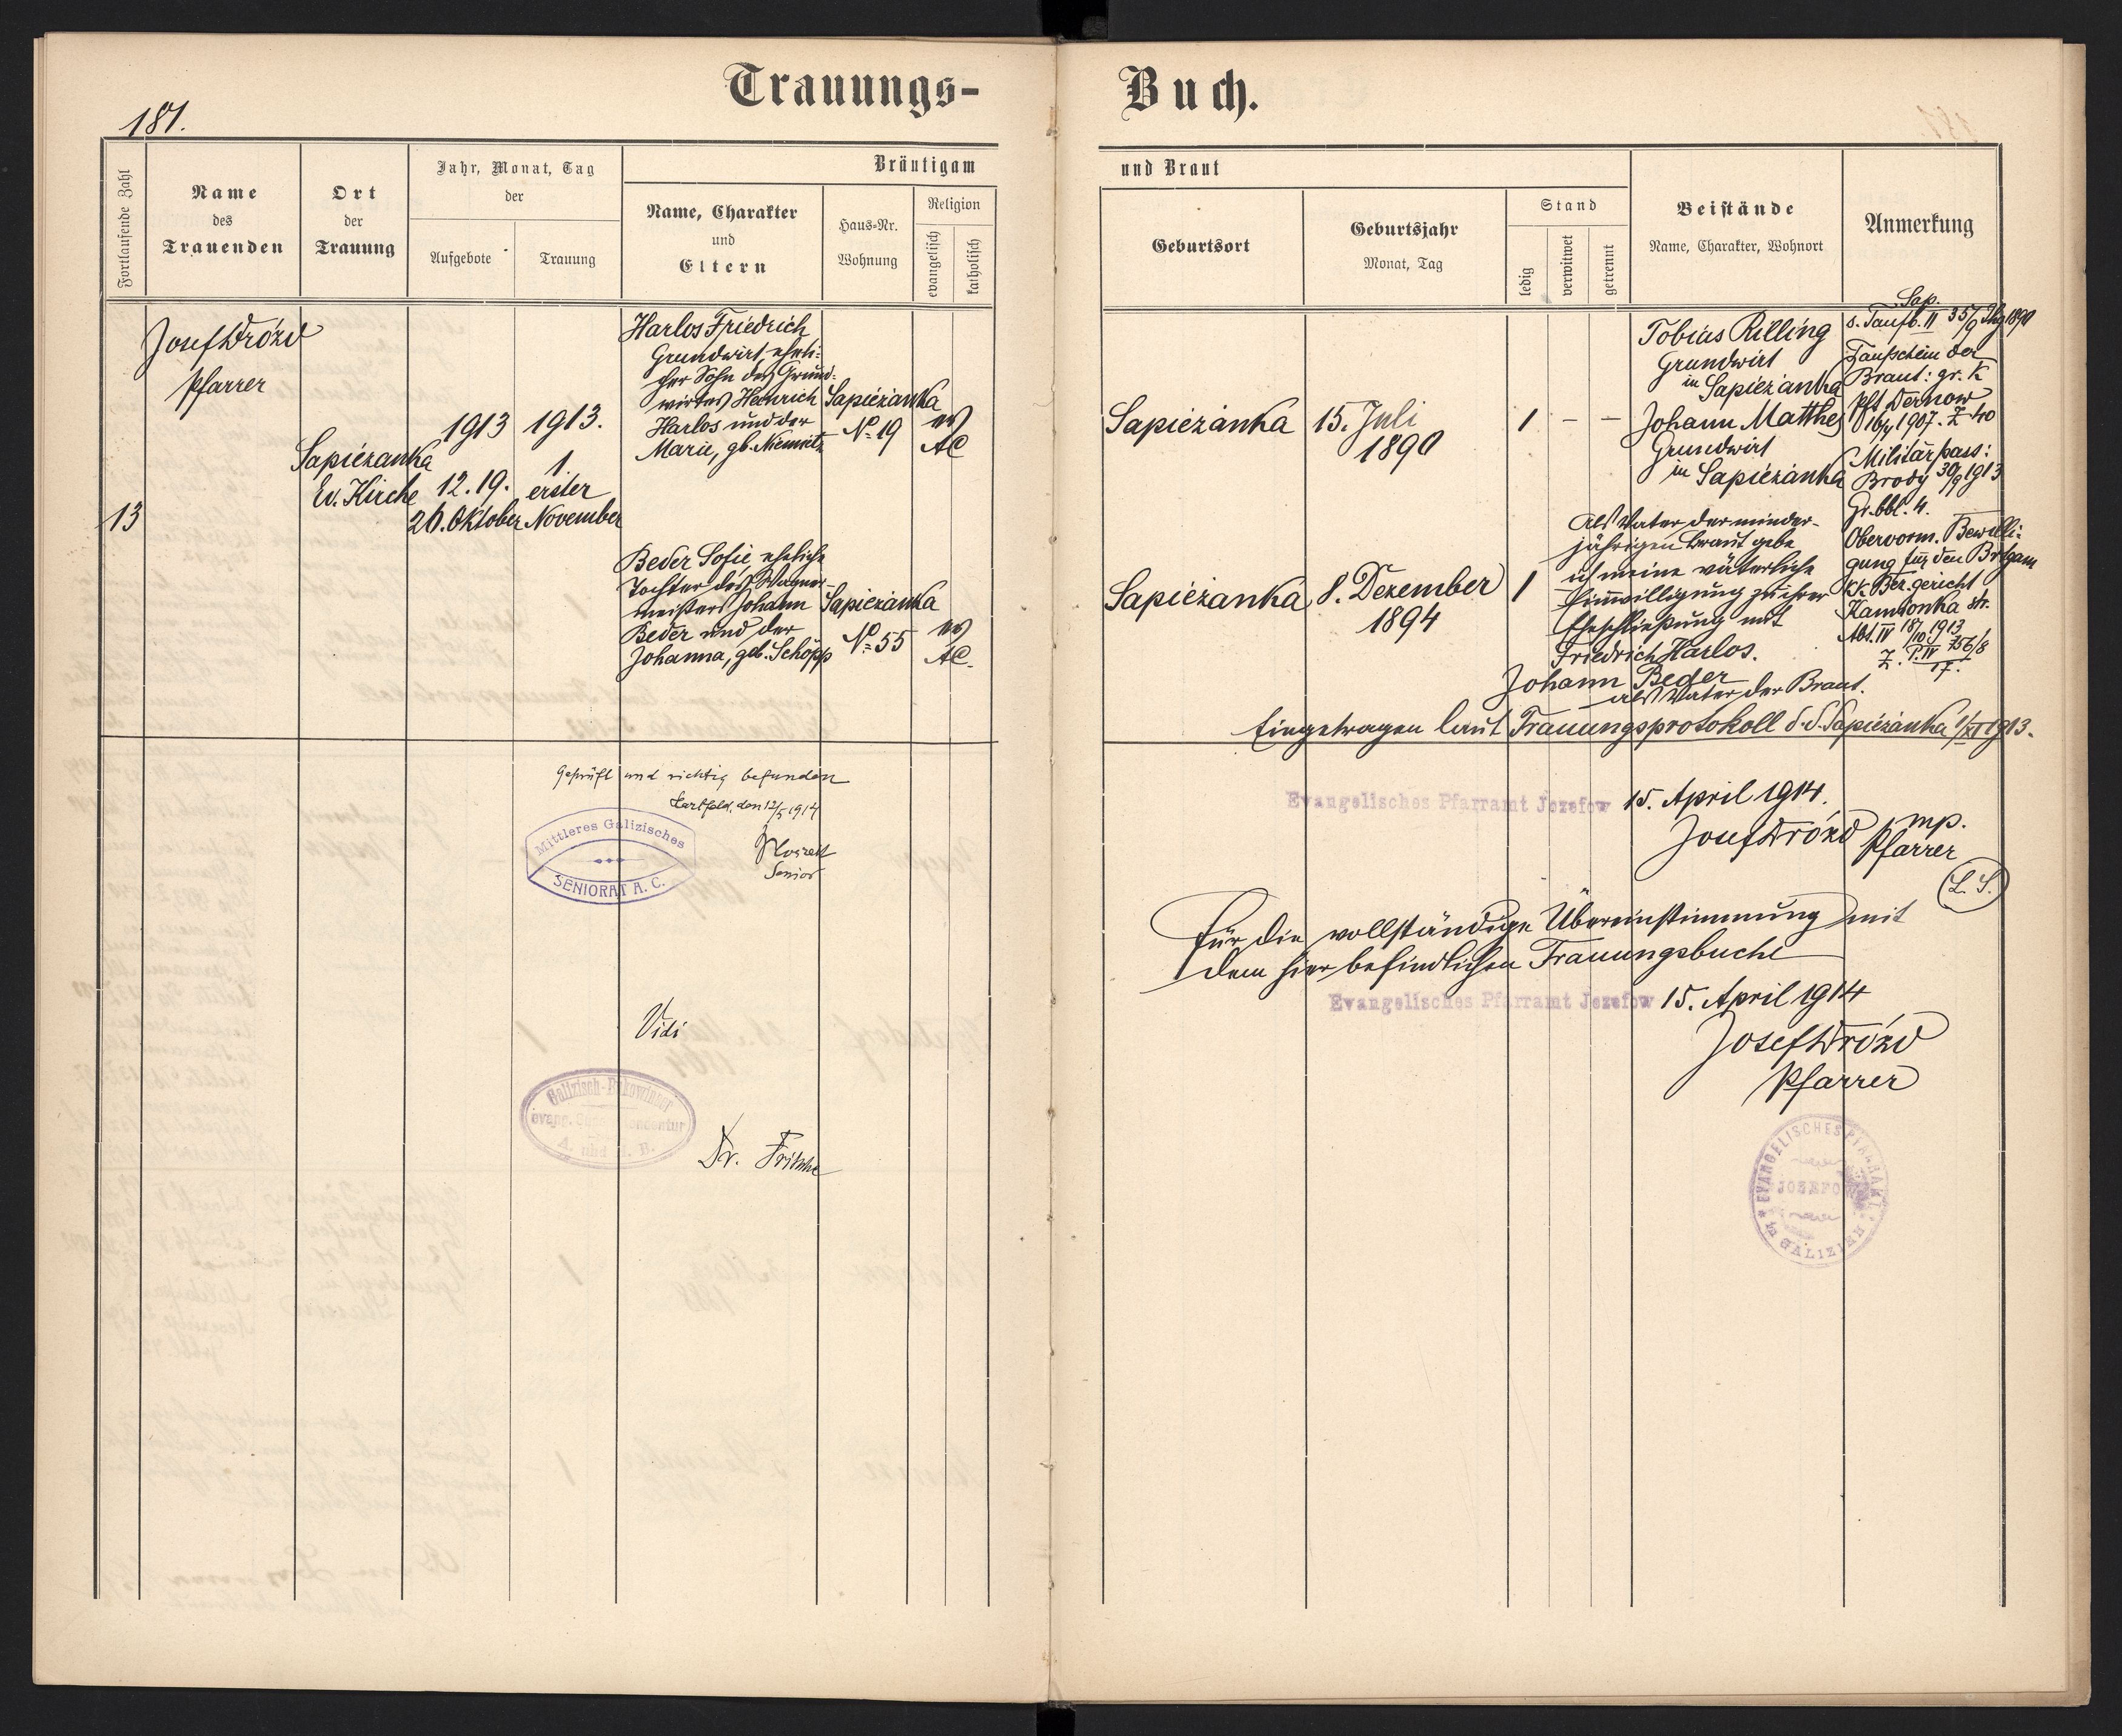 Trauungs-Buch.
181.
Fortlaufende Zahl
Name
des
Trauenden
Ort
der
Trauung
Jahr, Monat, Tag
der
Aufgebote
Trauung
Bräutigam und Braut
Name, Charakter
und
Eltern
Haus-Nr.
Wohnung
Religion
evangelisch
katholisch
Geburtsort
Geburtsjahr
Monat, Tag
Stand
ledig
verwitwet
getrennt
Beistände
Name, Charakter, Wohnort
Anmerkung
13
Josef Drózd
Pfarrer
Sapieżanka
Ev. Kirche
1913
12. 19.
26. Oktober
1913.
1.
erster
November
Harlos Friedrich
Grundwirt, eheli-
cher Sohn des Grund-
wirtes Heinrich
Harlos und der
Marie, gb. Niemetz
Sapieżanka
No 19
ev
AC
Sapieżanka
15. Juli
1890
1 — —
Tobias Rilling
Grundwirt
in Sapieżanka
Johann Matthes
Grundwirt
in Sapieżanka
Sap.
s. Taufb. II 35/9 1890
Taufschein der
Braut: gr. K
Dernow
1907. Z 40
Militärpass:
Brody 30/9 1913
Gr. bbl. 4.
Obervorm. Bewilli-
gung für den Brtgam
k.k. Bez. gericht
Kamionka str.
Abt. IV 18/10 1913
Z. P. IV 256/8
17.
Beder Sofie, eheliche
Tochter des Wagner-
meisters Johann
Beder und der
Johanna, geb. Schöpp
Sapieżanka
No 55
ev
AC.
Sapieżanka
8. Dezember
1894
1
Als Vater der minder-
jährigen Braut gebe
ich meine väterliche
Einwilligung zu ihrer
Eheschließung mit
Friedrich Harlos.
Johann Beder
als Vater der Braut.
Eingetragen laut Trauungsprotokoll d. d. Sapieżanka 1/XI 1913.
Geprüft und richtig befunden
Hartfeld, den 12/5 1914
Senior
Mittleres Galizisches
SENIORAT A. C.
Evangelisches Pfarramt Jozefow 15. April 1914.
Josef Drózd mp.
Pfarrer
L. S.
Für die vollständige Übereinstimmung mit
dem hier befindlichen Trauungsbuche
Evangelisches Pfarramt Jozefow 15. April 1914
Josef Drózd
Pfarrer
EVANGELISCHES PFARRAMT
JOZEFOW
GALIZIEN
Vidi
Galizisch-Bukowiner
evang. Superintendentur
A. und H. B.
Dr. Fritsche